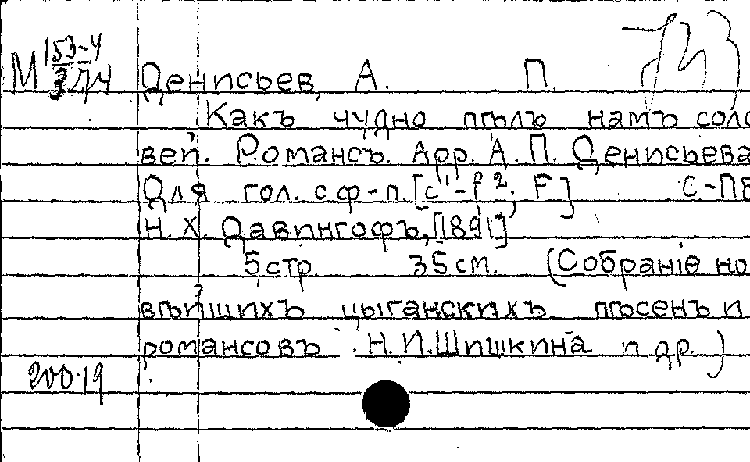 М 153-4
Денисьев, А. П.
3/Д4
Какъ чудно пѣлъ намъ соло
вей. Романсъ. Арр. А. П. Денисьева
Для гол. с ф-п. [c¹-f²; F] С-Пб
Н. Х. Давингофъ, [1891]
5 стр. 35 см. (Собраніе но
вѣйшихъ цыганскихъ пѣсенъ и
романсовъ Н. И. Шишкина и др.)
200-19